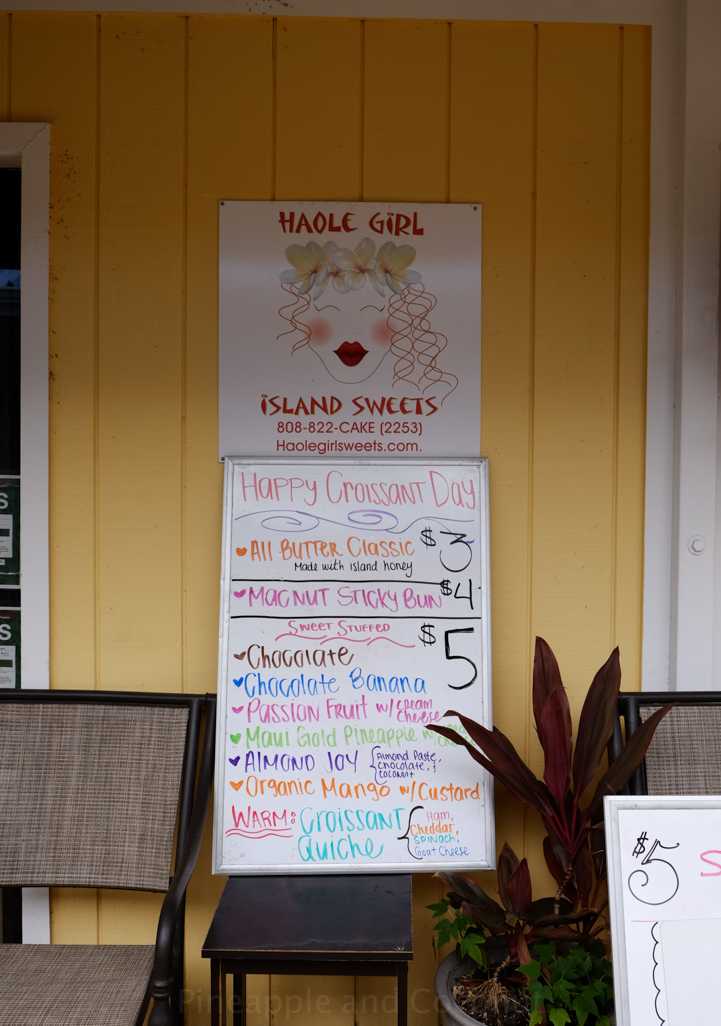 HAOLE GiRL
iSLAND SWEETS
808-822-CAKE (2253)
Haolegirlsweets.com.
Happy Croissant Day
All Butter Classic $3
Made with island honey
Macnut Sticky Bun $4
Sweet Stuffed $5
Chocolate
Chocolate Banana
Passion Fruit w/ cream cheese
Maui Gold Pineapple w/
Almond Joy {Almond Paste, chocolate, & coconut
Organic Mango w/ Custard
Warm: Croissant Quiche {Ham, Cheddar, Spinach, Goat Cheese
$5 S
S
S
Pineapple and Co